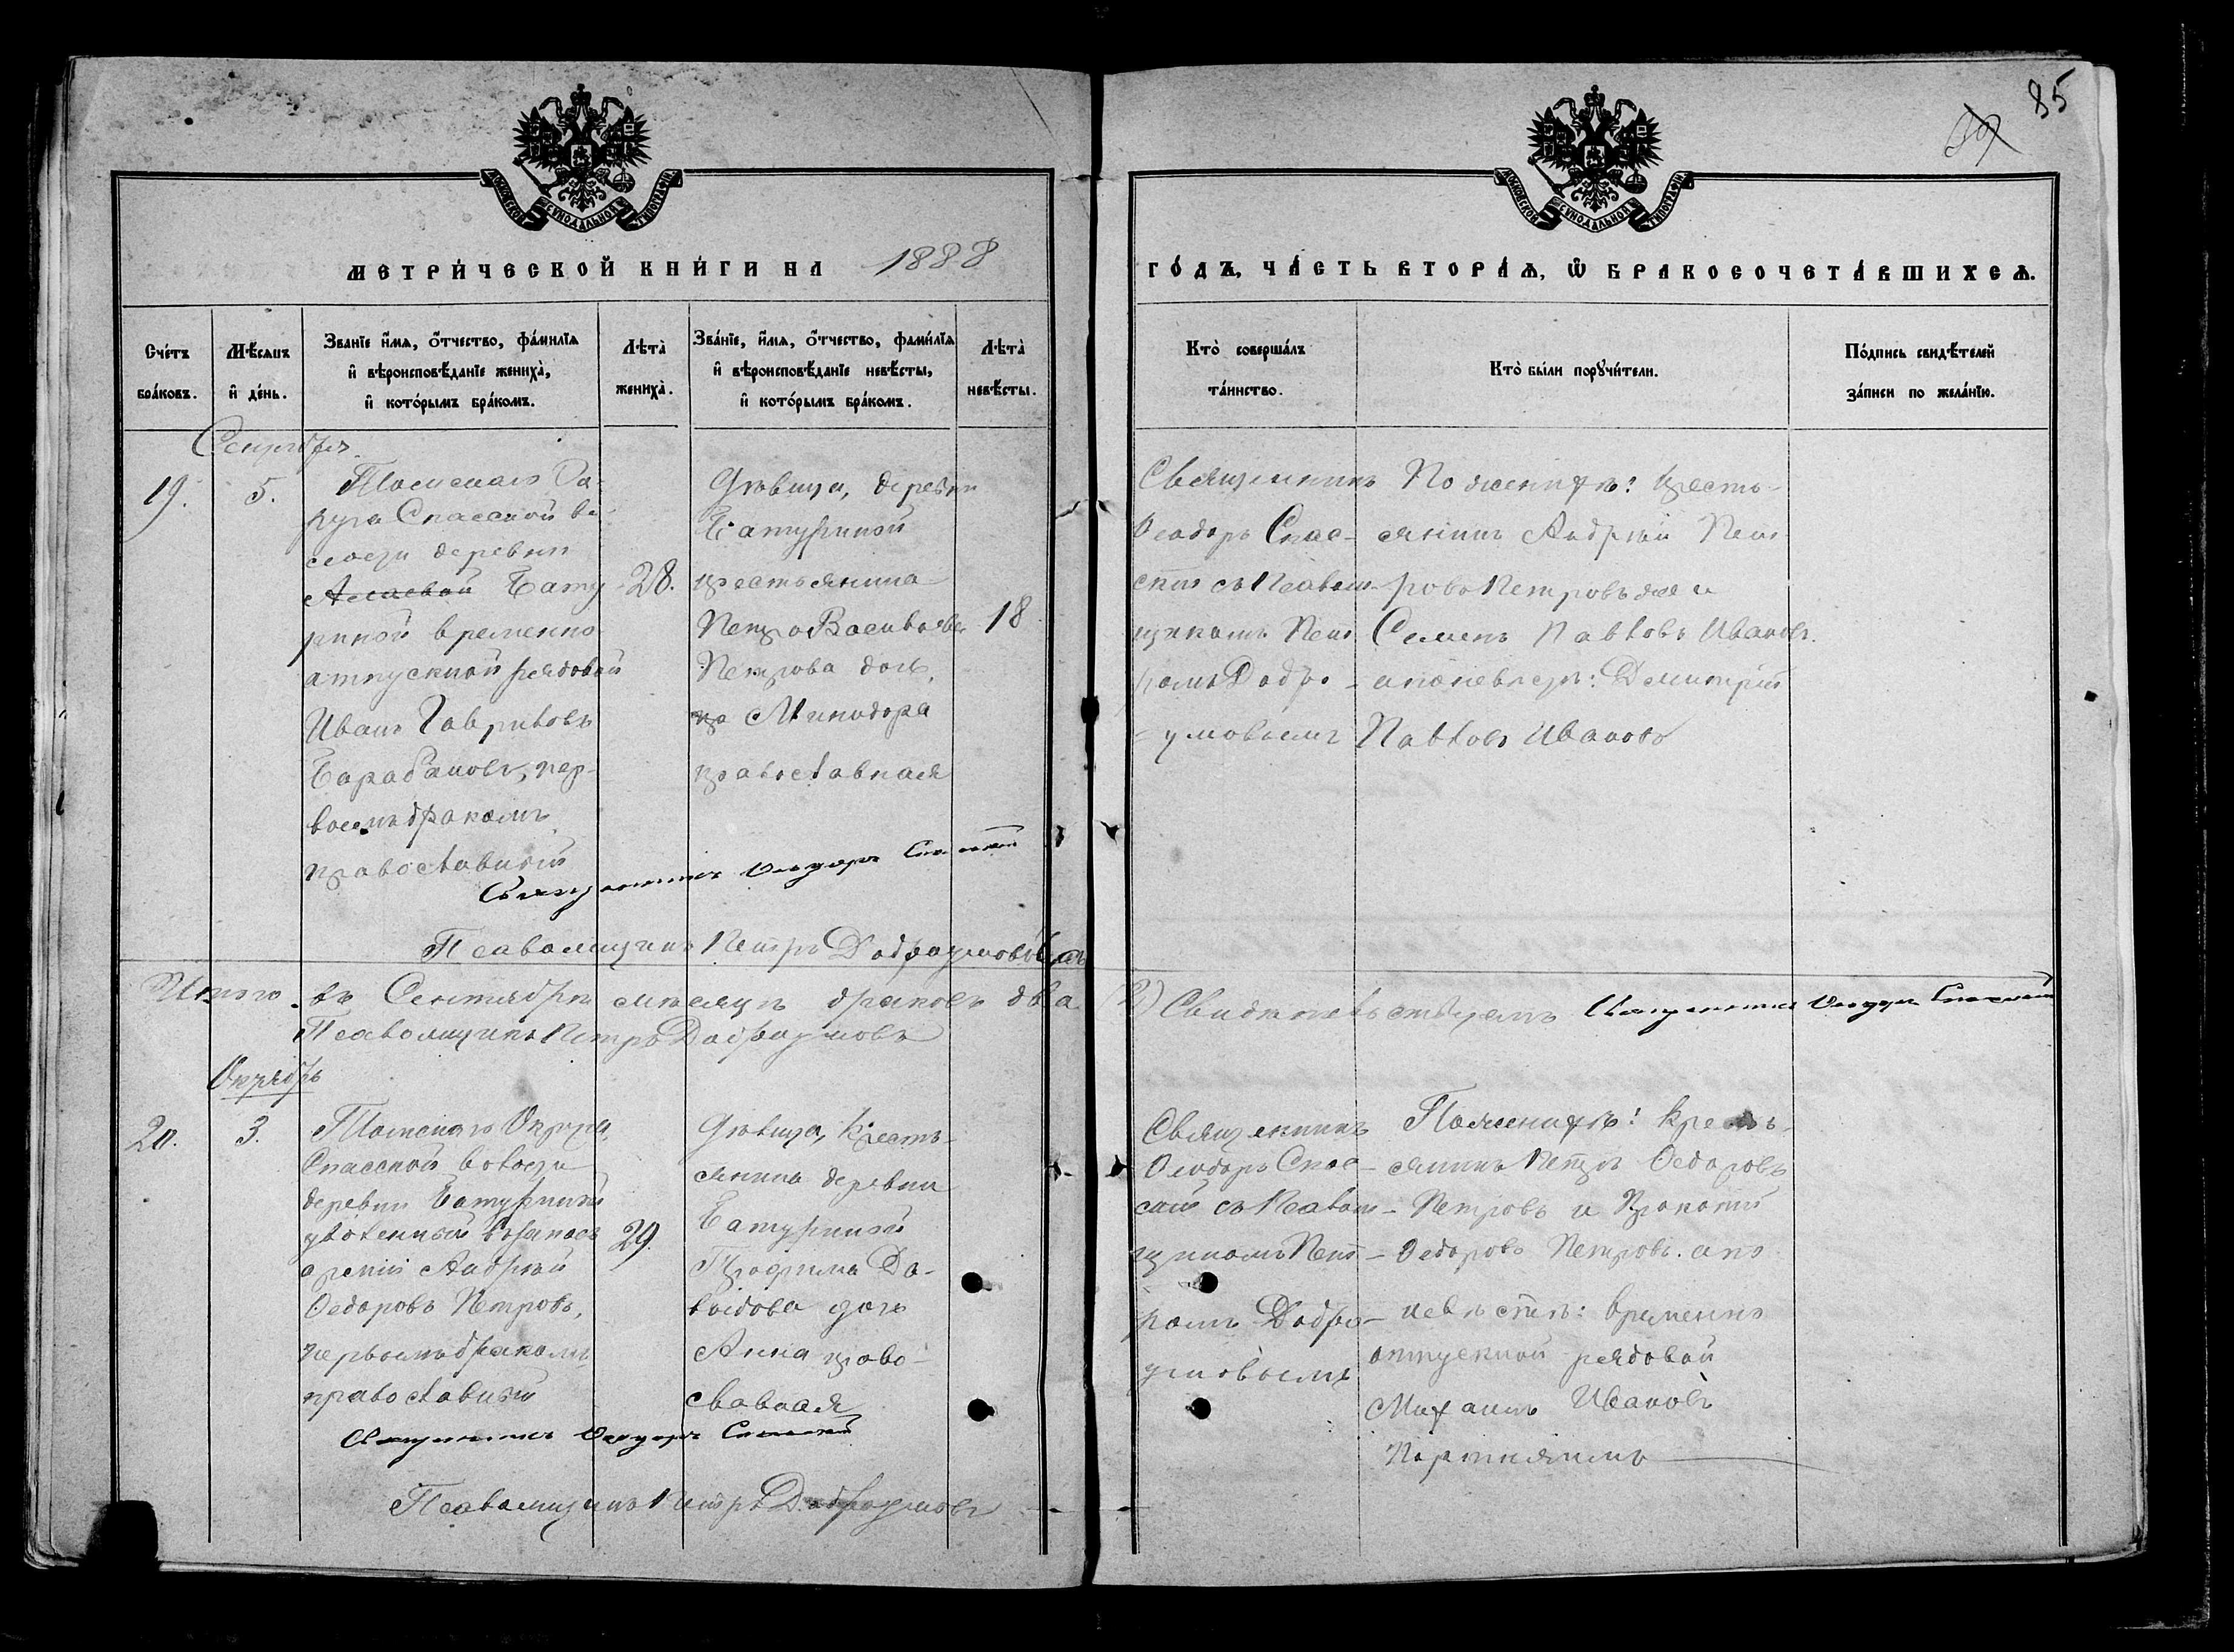 85
МОСКОВСКОЙ СУНОДАЛЬНОЙ ТИПОГРАФІИ
МОСКОВСКОЙ СУНОДАЛЬНОЙ ТИПОГРАФІИ
МЕТРИ́ЧЕСКОЙ КНИ́ГИ НА 1888
ГО́ДЪ, ЧА́СТЬ ВТОРА́Ѧ, Ѽ БРАКОСОЧЕТА́ВШИХСѦ.
Сче́тъ бра́ковъ.
Мѣ́сѧцъ и҆ де́нь.
Зва́нїе и҆́мѧ, ѻ҆́тчество, фамилїѧ и҆ вѣроисповѣ́данїе жениха̀, и҆ кото́рымъ бра́комъ.
Лѣта̀ жениха̀.
Зва́нїе, и҆́мѧ, ѻ҆́тчество, фами́лїѧ и҆ вѣроисповѣ́данїе невѣ́сты, и҆ кото́рымъ бра́комъ.
Лѣта̀ невѣ́сты.
Кто̀ соверша́лъ та́инство.
Кто̀ бы́ли порꙋчи́тели.
По́дпись свидѣ́телей за́писи по жела́нїю.
Сентябрь
19.
5.
Томскаго Ок-
руга Спасской во-
лости деревни
Бату
риной временно
отпускной рядовой
Иванъ Гавриловъ
Барабановъ, пер-
вымъ бракомъ
православный
28.
Дѣвица, деревни
Батуриной
крестьянина
Петра Васильева
Петрова дочь,
Минодора
православная
18
Священникъ
Ѳеодоръ Спас-
скій съ Псаломщ-
щикомъ Пет
ромъ Добро-
умовымъ
По женихѣ: кресть-
янинъ Андрей Пет
ровъ Петровъ же и
Семенъ Павловъ Ивановъ.
а по невѣстѣ: Димитрій
Павловъ Ивановъ
Священникъ Ѳеодоръ Спасскій
Псаломщикъ Петръ Доброумовъ
Итого въ Сентябрѣ мѣсяцѣ браковъ два
(2) Свидѣтельствуемъ Священникъ Ѳеодоръ Спасскій
Псаломщикъ Петръ Доброумовъ
Октябрь
20.
3.
Томскаго Округа,
Спасской волости
деревни Батуриной
уволенный въ запасъ
арміи Андрей
Ѳедоровъ Петровъ,
первымъ бракомъ
православный
29.
Дѣвица, кресть-
янина деревни
Батуриной
Трофима Да-
выдова дочь
Анна право-
славная
Священникъ
Ѳеодоръ Спас-
скій съ Псаломщ-
щикомъ Пет-
ромъ Добро-
умовымъ
По женихѣ: кресть-
янинъ Петръ Ѳедоровъ
Петровъ и Прокопій
Ѳедоровъ Петровъ. а по
невѣстѣ: временно
отпускной рядовой
Михаилъ Ивановъ
Священникъ Ѳеодоръ Спасскій
Псаломщикъ Петръ Доброумовъ